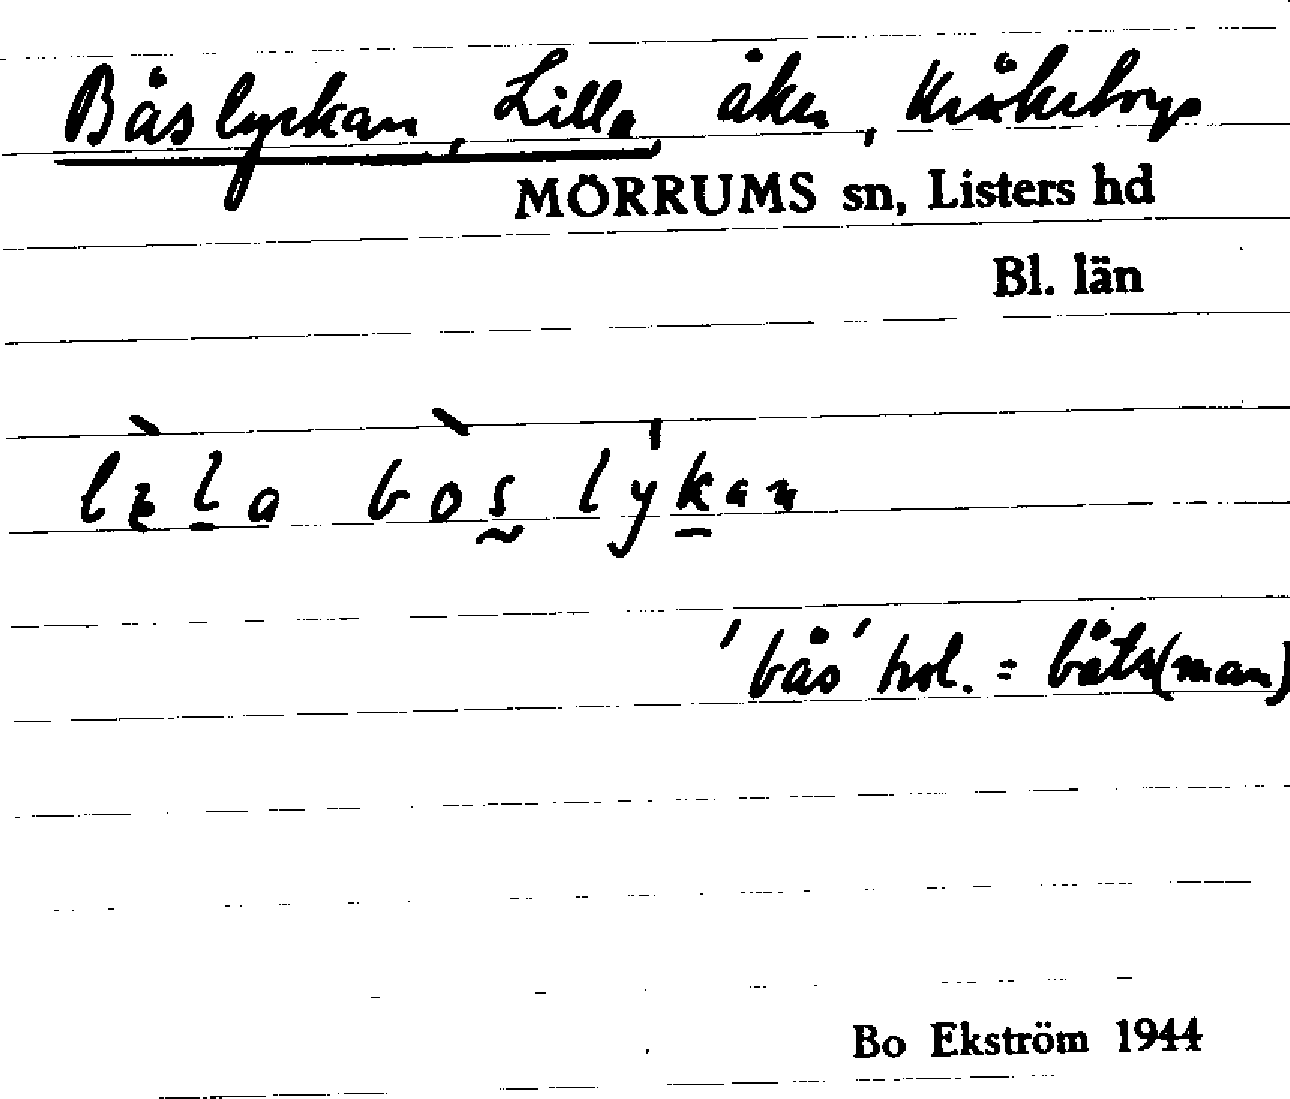 Båslyckan, Lilla, åker, Kråkebyg
MÖRRUMS sn, Listers hd
Bl. län
bòs lykan
'bås' hol. = båts(man)
Bo Ekström 1944